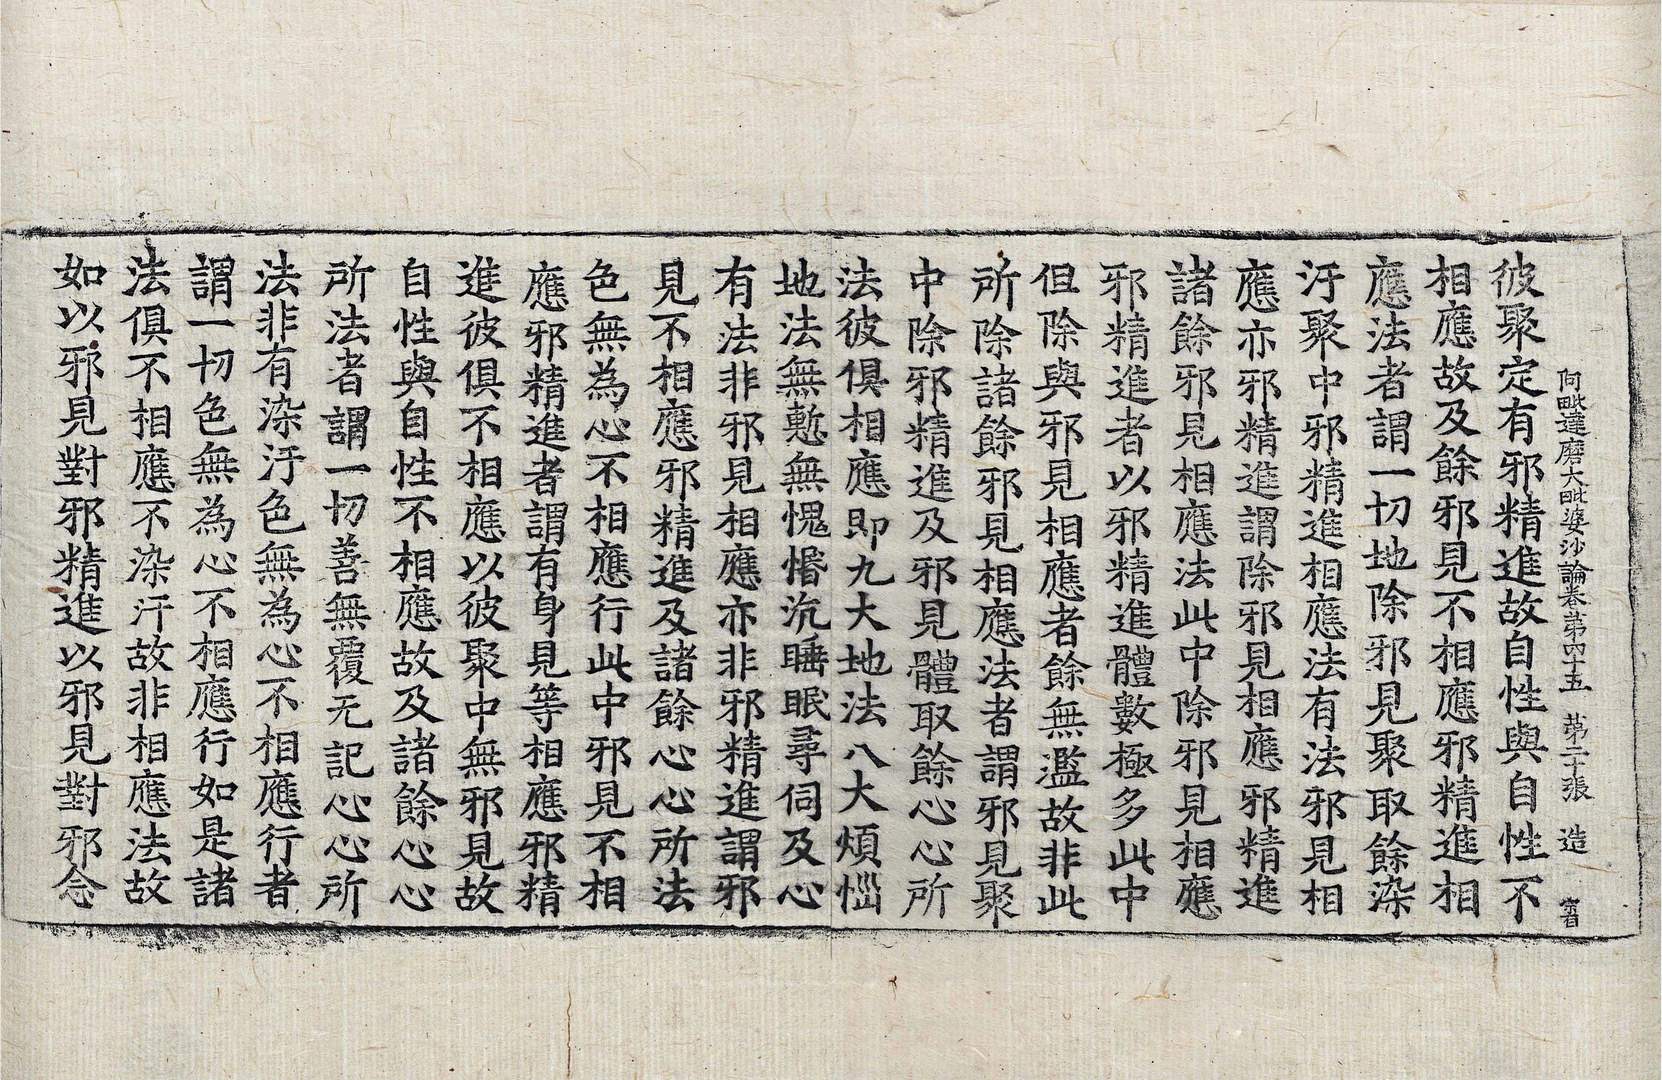 阿毗達磨大毗婆沙論卷第四十五 第二十張 造
彼聚定有邪精進故自性與自性不
相應故及餘邪見不相應邪精進相
應法者謂一切地除邪見聚取餘染
汙聚中邪精進相應法有法邪見相
應亦邪精進謂除邪見相應邪精進
諸餘邪見相應法此中除邪見相應
邪精進者以邪精進體數極多此中
但除與邪見相應者餘無濫故非此
所除諸餘邪見相應法者謂邪見聚
中除邪精進及邪見體取餘心心所
法彼俱相應即九大地法八大煩惱
地法無慙無愧惛沉睡眠尋伺及心
有法非邪見相應亦非邪精進謂邪
見不相應邪精進及諸餘心心所法
色無為心不相應行此中邪見不相
應邪精進者謂有身見等相應邪精
進彼俱不相應以彼聚中無邪見故
自性與自性不相應故及諸餘心心
所法者謂一切善無覆无記心心所
法非有染汙色無為心不相應行者
謂一切色無為心不相應行如是諸
法俱不相應不染汙故非相應法故
如以邪見對邪精進以邪見對邪念